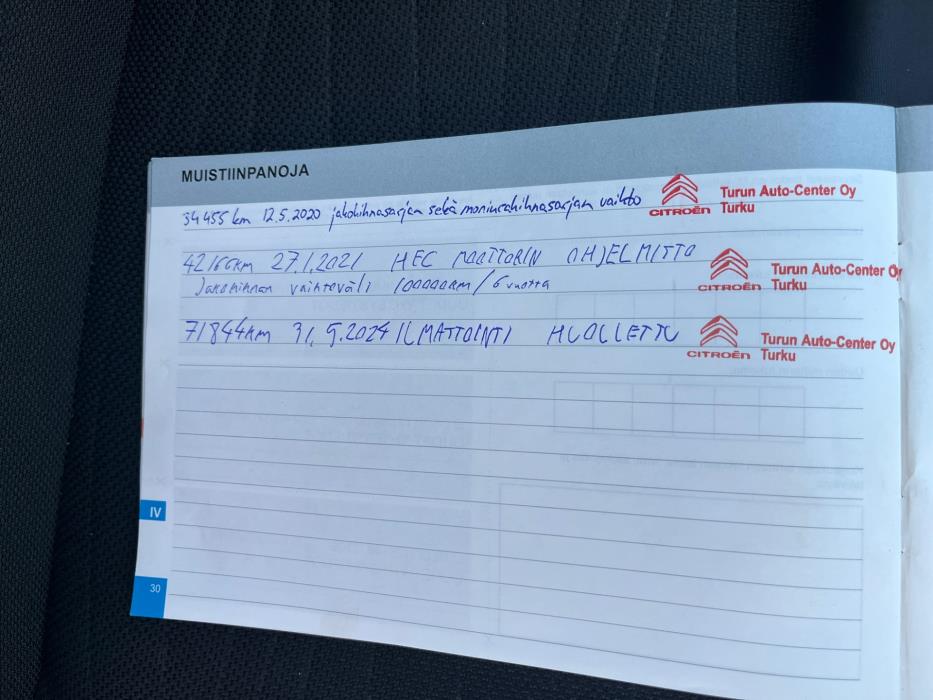 MUISTIINPANOJA
34 455 km 12.5.2020 jakohihnasarjan sekä moniurahihnasarjan vaihto
CITROËN Turun Auto-Center Oy
Turku
42166km 27.1.2021 HEC MOOTTORIN OHJELMITTO
Jakohihnan vaihteväli 100000km/6 vuotta
CITROËN Turun Auto-Center Oy
Turku
71844km 31.5.2024 ILMASTOINTI HUOLLETTU
CITROËN Turun Auto-Center Oy
Turku
IV
30